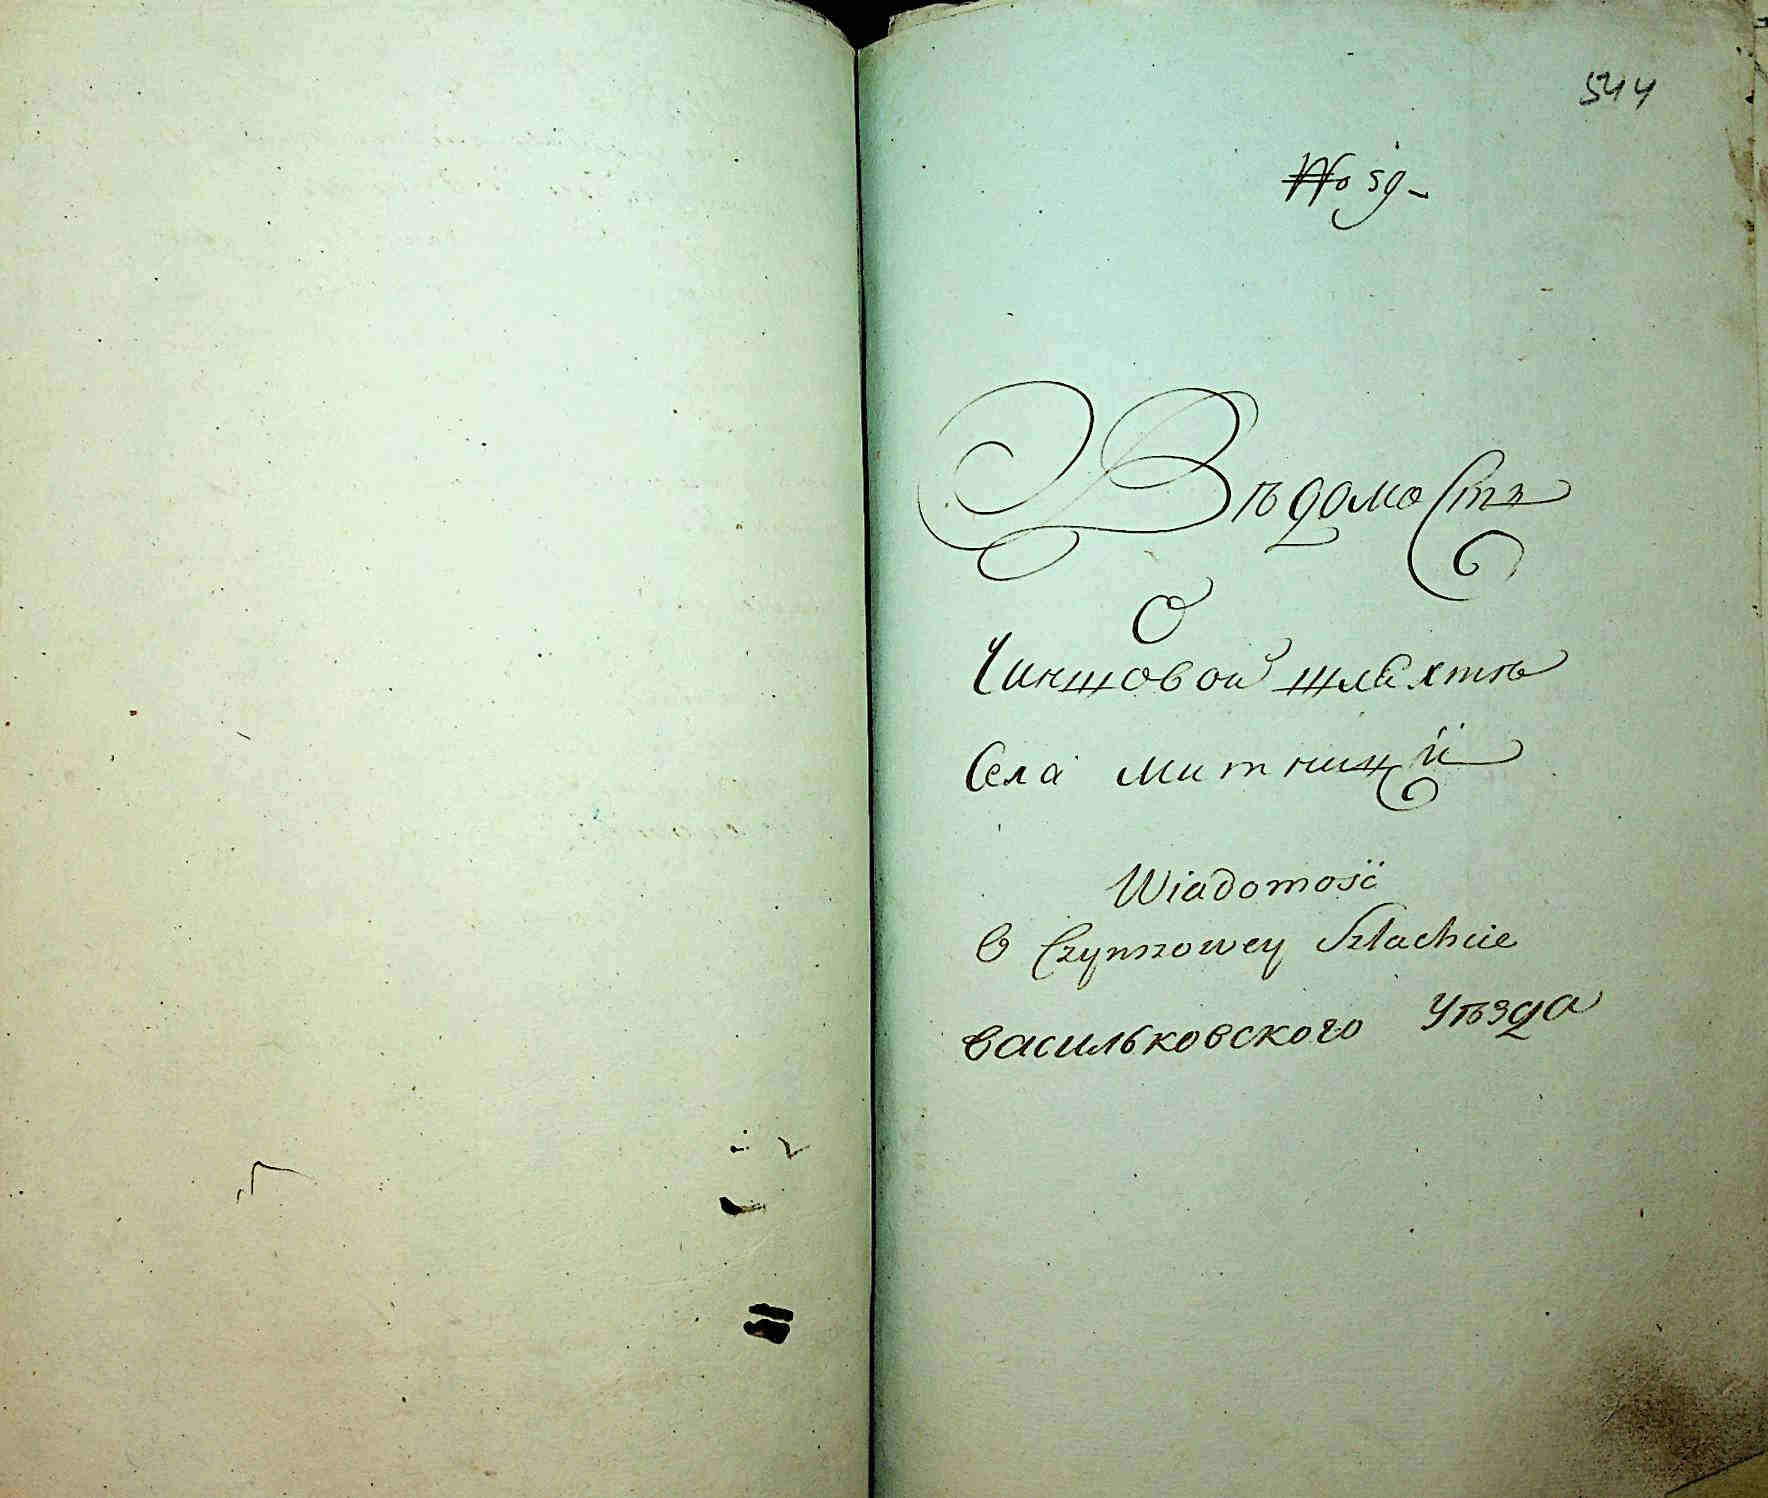 544
No 59
Вѣдомость
О
Чиншовой шляхтѣ
Села Митницы
Wiadomość
O Czynszowey Szlachcie
Васильковского Уѣзда